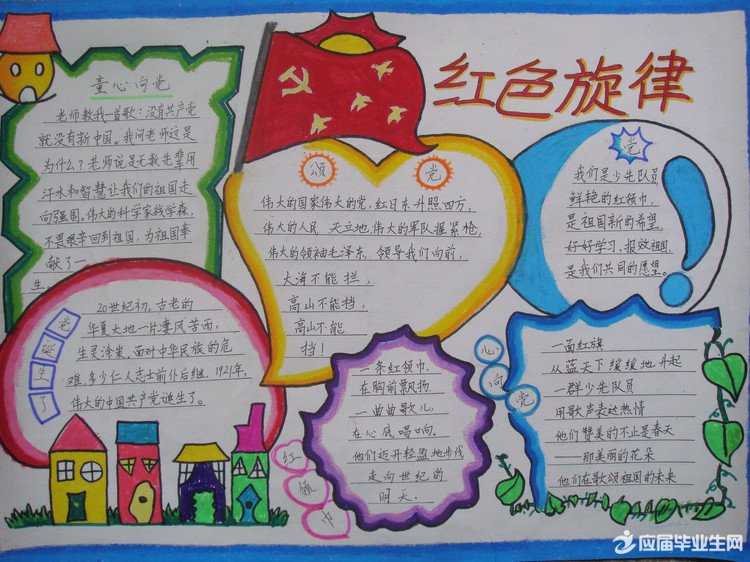 红色旋律
童心向党
老师教我一首歌：没有共产党
就没有新中国。我问老师这是
为什么？老师说是无数先辈用
汗水和智慧让我们的祖国走
向强国，伟大的科学家钱学森，
不畏艰辛回到祖国，为祖国奉
献了一
生。
颂党
伟大的国家伟大的党，红日东升照四方，
伟大的人民 天立地，伟大的军队握紧枪，
伟大的领袖毛泽东，领导我们向前，
大海不能拦，
高山不能挡，
高山不能
挡！
党
我们是少先队员
鲜艳的红领巾，
是祖国新的希望。
好好学习，报效祖国
是我们共同的愿望。
党诞生了
20世纪初，古老的
华夏大地一片凄风苦雨，
生灵涂炭。面对中华民族的危
难，多少仁人志士前仆后继，1921年，
伟大的中国共产党诞生了。
红领巾
一条红领巾，
在胸前飘扬
一曲曲歌儿
在心底唱响。
他们迈开轻盈地步伐
走向世纪的
明天。
心向党
一面红旗
从蓝天下缓缓地升起
一群少先队员
用歌声表达热情
他们赞美的不止是春天
——那美丽的花朵
他们在歌颂祖国的未来
应届毕业生网